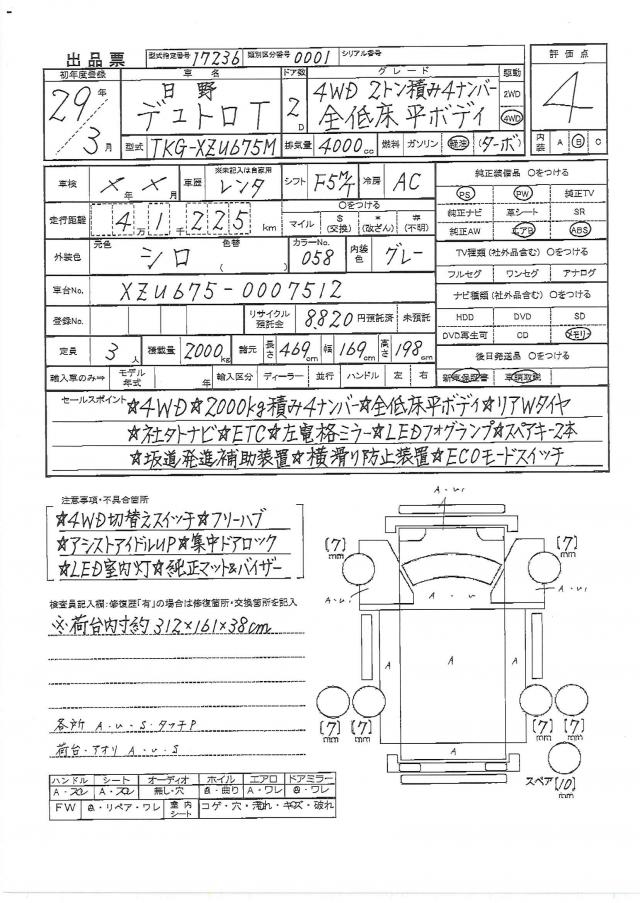 出品票 型式指定番号 17236 類別区分番号 0001 シリアル番号
初年度登録 車名 ドア数 グレード 駆動 評価点
29年 3月
日野 デュトロT
2D
4WD 2トン積み4ナンバー
全低床平ボディ
2WD 4WD
4
型式 TKG-XZU675M 排気量 4000cc 燃料 ガソリン 軽油 (ターボ) 内装 A B C
車検 ×年 ×月 車歴 ※未記入は自家用 レンタ シフト F5M/T 冷房 AC
走行距離 4万1千225km
○をつける
マイル $(交換) *(改ざん) #(不明)
外装色 元色 シロ 色替 カラーNo. 058 内装色 グレー
車台No. XZU675-0007512
登録No. リサイクル預託金 8,820円預託済 未預託
定員 3人 積載量 2000kg 諸元 長さ 469cm 幅 169cm 高さ 198cm
輸入車のみ⇒ モデル年式 年 輸入区分 ディーラー 並行 ハンドル 左 右
純正装備品 ○をつける
PS PW 純正TV
純正ナビ 革シート SR
純正AW エアB ABS
TV種類(社外品含む) ○をつける
フルセグ ワンセグ アナログ
ナビ種類(社外品含む) ○をつける
HDD DVD SD
DVD再生可 CD メモリー
後日発送品 ○をつける
新車保証書 車輌取説
セールスポイント
☆4WD☆2000kg積み4ナンバー☆全低床平ボディ☆リアWタイヤ
☆社外ナビ☆ETC☆左電格ミラー☆LEDフォグランプ☆スペアキー2本
☆坂道発進補助装置☆横滑り防止装置☆ECOモードスイッチ
注意事項・不具合箇所
☆4WD切替えスイッチ☆フリーハブ
☆アシストアイドルUP☆集中ドアロック
☆LED室内灯☆純正マット&バイザー
検査員記入欄:修復歴「有」の場合は修復箇所・交換箇所を記入
※荷台内寸約312×161×38cm
各所 A・U・S・タッチP
荷台・アオリ A・U・S
ハンドル シート オーディオ ホイル エアロ ドアミラー
A・スレ A・スレ 無し・穴 曲り A・ワレ ワレ
FW リペア・ワレ 室内シート コゲ・穴・汚れ・キズ・破れ
A・U
[7]mm [7]mm
A・U A・U A・U
A A A
[7]mm [7]mm [7]mm [7]mm
A
スペア [10]mm